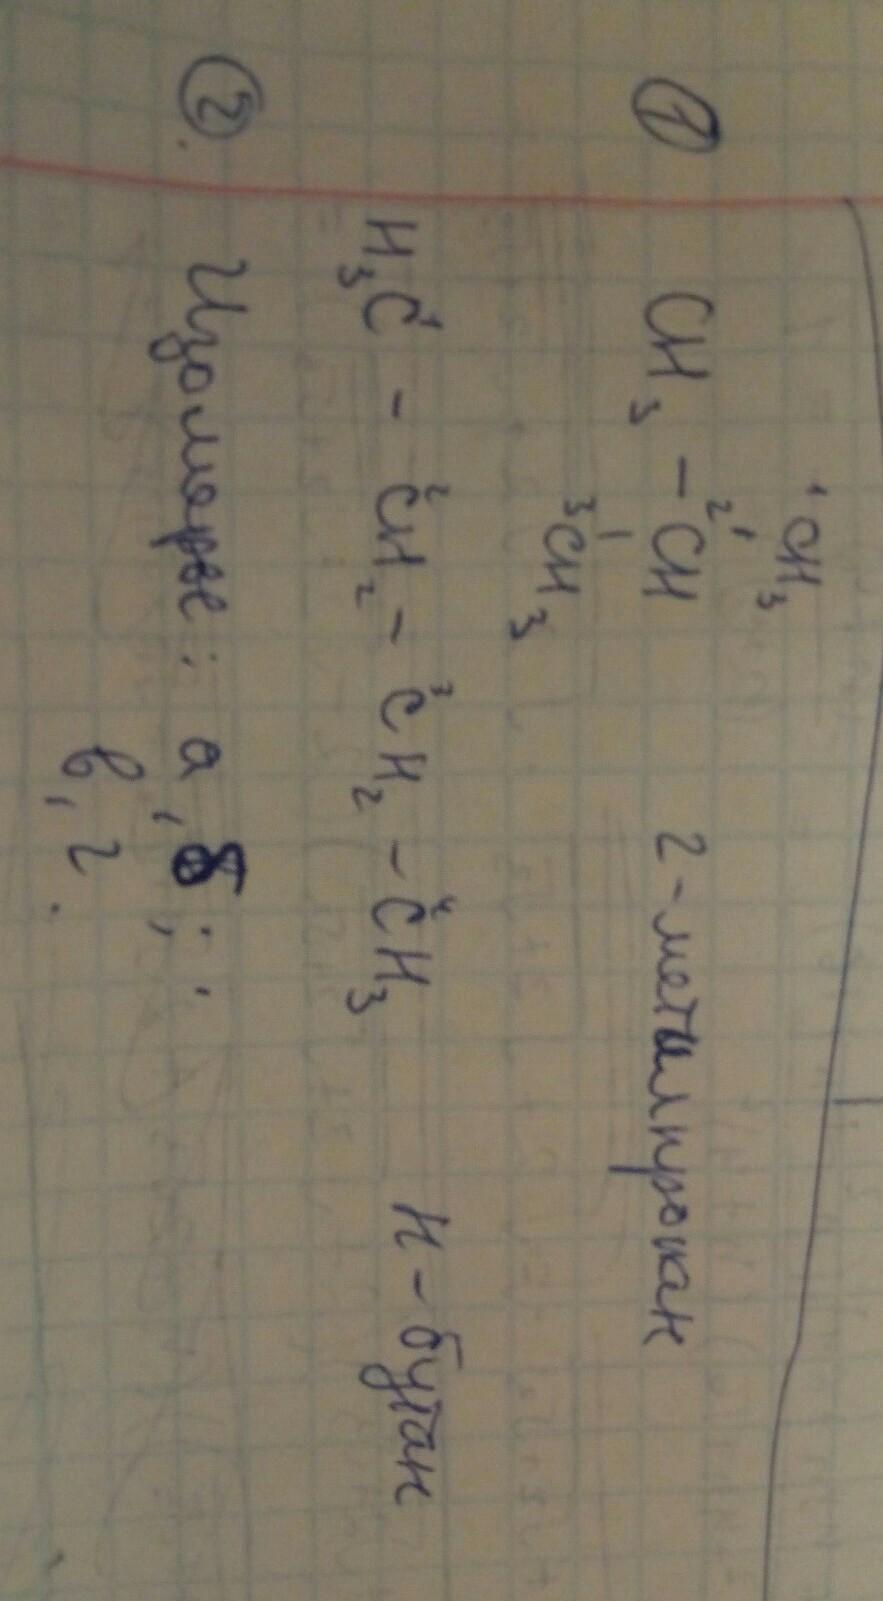 ¹CH₃
①  CH₃ – ²CH   2-метилпропан
³CH₃
H₃C¹ – ²CH₂ – ³CH₂ – ⁴CH₃   н-бутан
②. Изомеры: а, б;
в, г.